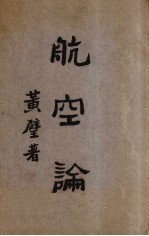 航空論
黃璧著